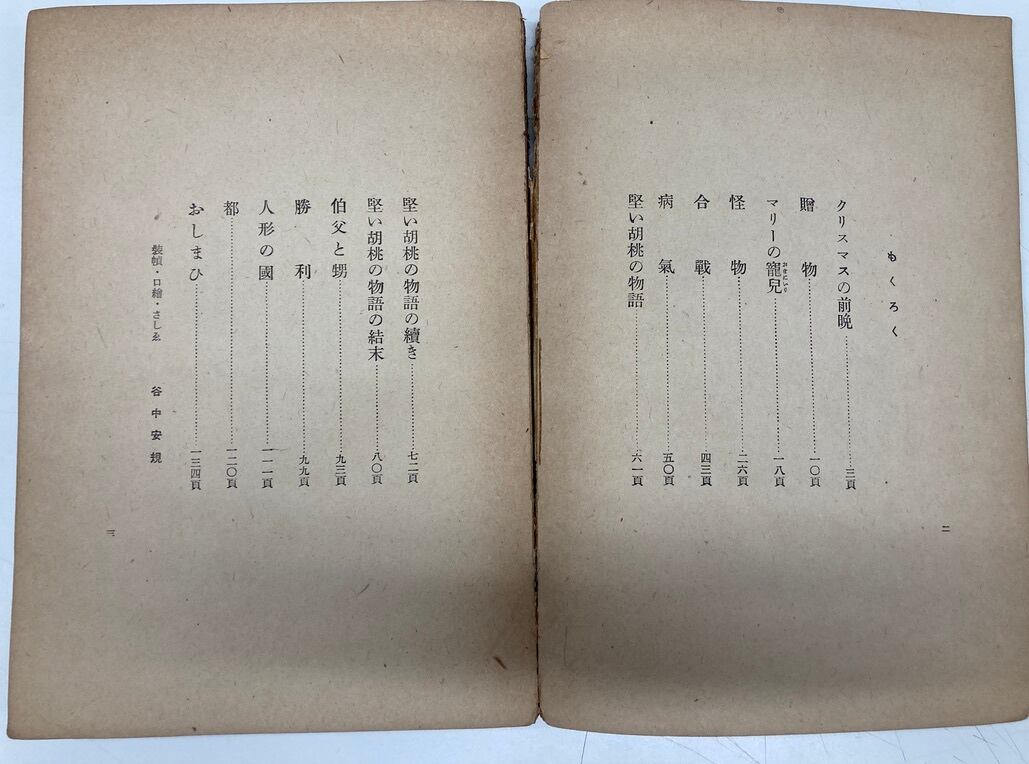 もくろく
クリスマスの前晩……三頁
贈物……一〇頁
マリーの寵兒……一八頁
おきにいり
怪物……二六頁
合戰……四三頁
病氣……五〇頁
堅い胡桃の物語……六一頁
二
堅い胡桃の物語の續き……七二頁
堅い胡桃の物語の結末……八〇頁
伯父と甥……九三頁
勝利……九九頁
人形の國……一一一頁
都……一二〇頁
おしまひ……一三四頁
裝幀・口繪・さしゑ 谷中安規
三